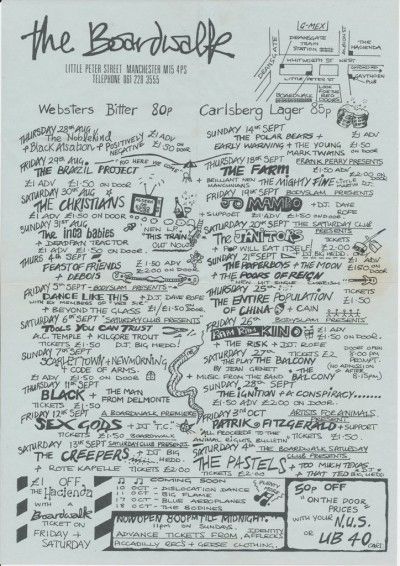 The Boardwalk
LITTLE PETER STREET MANCHESTER M15 4PS
TELEPHONE 061 228 3555
G-MEX
DEANSGATE
DEANSGATE TRAIN STATION
ALBION ST
THE HACIENDA
WHITWORTH ST WEST
LITTLE PETER ST
GAYTHORN PUB
BOARDWALK
LOOK FOR THE RED DOORS
Websters Bitter 80p
Carlsberg Lager 85p
THURSDAY 28TH AUG
THE NOBLEKIND
+ Black Alsation + POSITIVELY NEGATIVE
£1 ADV
£1.50 ON DOOR
FRIDAY 29TH AUG.
THE BRAZIL PROJECT
£1 ADV £1.50 ON DOOR
SATURDAY 30TH AUG
THE CHRISTIANS
£1 ADV £1.50 ON DOOR
SUNDAY 31ST AUG
The Inca babies
+ DEADPAN TRACTOR
£1 ADV £1.50 ON DOOR
NEW L.P.
THIS TRAIN
OUT NOW!
THURS 4TH SEPT
FEAST OF FRIENDS
+ DEBRIS
£1.50 ADV
£2.00 ON DOOR
FRIDAY 5TH SEPT - BODYSLAM PRESENTS
DANCE LIKE THIS + DJ. DAVE ROFE
+ BEYOND THE GLASS £1/£1.50 DOOR
SATURDAY 6TH SEPT SATURDAY CLUB PRESENTS
TOOLS YOU CAN TRUST
A.C. TEMPLE + KILGORE TROUT
TICKETS £1.50 DJ. BIG HEDD!
SUNDAY 7TH SEPT
MOBLEYTOWN + NEW MORNING
+ CODE OF ARMS.
£1 ADV £1.50 ON DOOR
THURSDAY 11TH SEPT
BLACK + THE MAN FROM DELMONTE
FRIDAY 12TH SEPT A BOARDWALK PREMIERE
SEX GODS + DJ "T.C."
TICKETS £1.50 BOARDWALK
SATURDAY 13TH SEPT SATURDAY CLUB PRESENTS
THE CREEPERS + DJ. BIG HEDD
+ ROTE KAPELLE TICKETS £2.00
SUNDAY 14TH SEPT
THE POLAR BEARS +
EARLY WARNING + THE YOUNG MARK TWAINS
£1 ADV
£1.50 ON DOOR
THURSDAY 18TH SEPT FRANK PERRY PRESENTS
THE FARM
+ BRILLIANT NEW MANCUNIANS THE MIGHTY FINE
£1.50 ADV
£2.00 ON DOOR
FRIDAY 19TH SEPT BODYSLAM PRESENTS
JO MAMBO + D.J. DAVE ROFE
+ SUPPORT £1 ADV £1.50 ON DOOR
SATURDAY 20TH SEPT THE SATURDAY CLUB PRESENTS
THE JANITORS
+ POP WILL EAT ITSELF
TICKETS £2.00
+ DJ. BIG HEDD.
SUNDAY 21ST SEPT
THE PAPERBOYS + THE MOON
+ THE POURS OF REIGN
THURSDAY 25TH SEPT
THE ENTIRE POPULATION OF CHINA + CAIN
TICKETS £1.50
FRIDAY 26TH BODYSLAM PRESENTS
KINO
+ THE RISK + DJT ROFE
£1 ADV
£1.50 ON DOOR
SATURDAY 27TH TICKETS £2
THE PLAY THE BALCONY
BY JEAN GENET
+ MUSIC FROM THE BAND THE BALCONY
DOOR OPEN 8:00 PM PROMPT.
(NO ADMISSION AFTER 8:15PM)
SUNDAY 28TH SEPT
THE IGNITION + A CONSPIRACY.......
£1.50 ADV £2.00 ON DOOR.
FRIDAY 3RD OCT ARTISTS FOR ANIMALS PRESENT
PATRIK FITZGERALD + SUPPORT
"ALL PROCEEDS TO THE ANIMAL RIGHTS BULLETIN" TICKETS £1.50.
SATURDAY 4TH THE BOARDWALK SATURDAY CLUB PRESENTS
THE PASTELS + TOO MUCH TODAY
TICKETS £2.00 + D.J. THAT TED BIG HEDD
£1 OFF
The Hacienda
WITH Boardwalk
TICKET ON
FRIDAY +
SATURDAY
COMING SOON
OCT - DISLOCATION DANCE
OCT - BIG FLAME
17 OCT - BLUE AEROPLANES
18 OCT - THE BODINES
NOW OPEN 8:00PM TILL MIDNIGHT.
11PM ON SUNDAYS.
ADVANCE TICKETS FROM, IDENTITY AFFLECKS
PICCADILLY REC'S + GEESE CLOTHING.
50P OFF
"ON THE DOOR" PRICES
WITH YOUR N.U.S.
OR UB40 CARD.